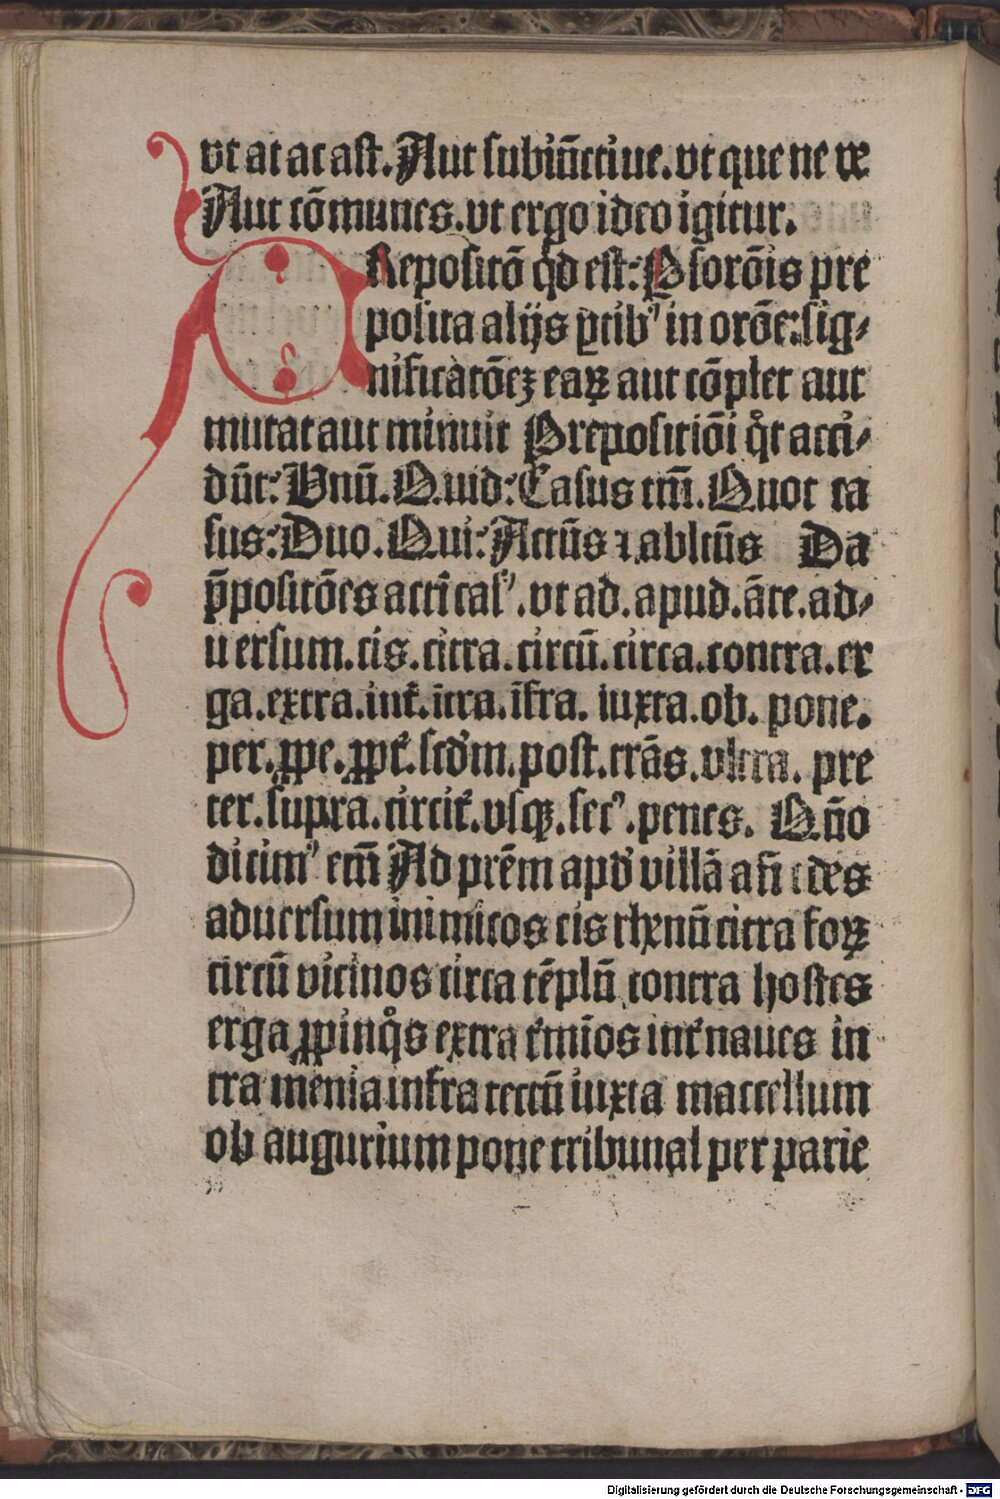 vt at ac ast. Aut subiūctiue. vt que ne ve
Aut cōmunes. vt ergo ideo igitur.
PRepositō qd est: Psorōis pre
posita alijs ꝑtibꝰ in orōe: sig⸗
nificatōeꝫ eaꝝ aut cōplet aut
mutat aut minuit Prepositiōi qͦt acci⸗
dūt: Vnū. Quid: Casus tm̄. Quot ca
sus: Duo. Qui: Actūs ⁊ abltūs Da
p̄positōes acti casꝰ. vt ad. apud. āte. ad⸗
uersum. cis. citra. circū. circa. contra. er
ga. extra. int̄. ītra. īfra. iuxta. ob. pone.
per. ꝓpe. ꝓpt̄. scd̄m. post. trās. vltra. pre
ter. supra. circit̄. vsqꝫ. secꝰ. penes. Qūo
dicimꝰ em̄ Ad prēm apd̓ villā afi edes
aduersum inimicos cis rhenū citra foꝝ
circū vicinos circa tēplū contra hostes
erga ꝓpinqͦs extra t̓mīos int̓ naues in
tra menia infra tectū iuxta maccellum
ob augurium pone tribunal per parie
Digitalisierung gefördert durch die Deutsche Forschungsgemeinschaft - DFG